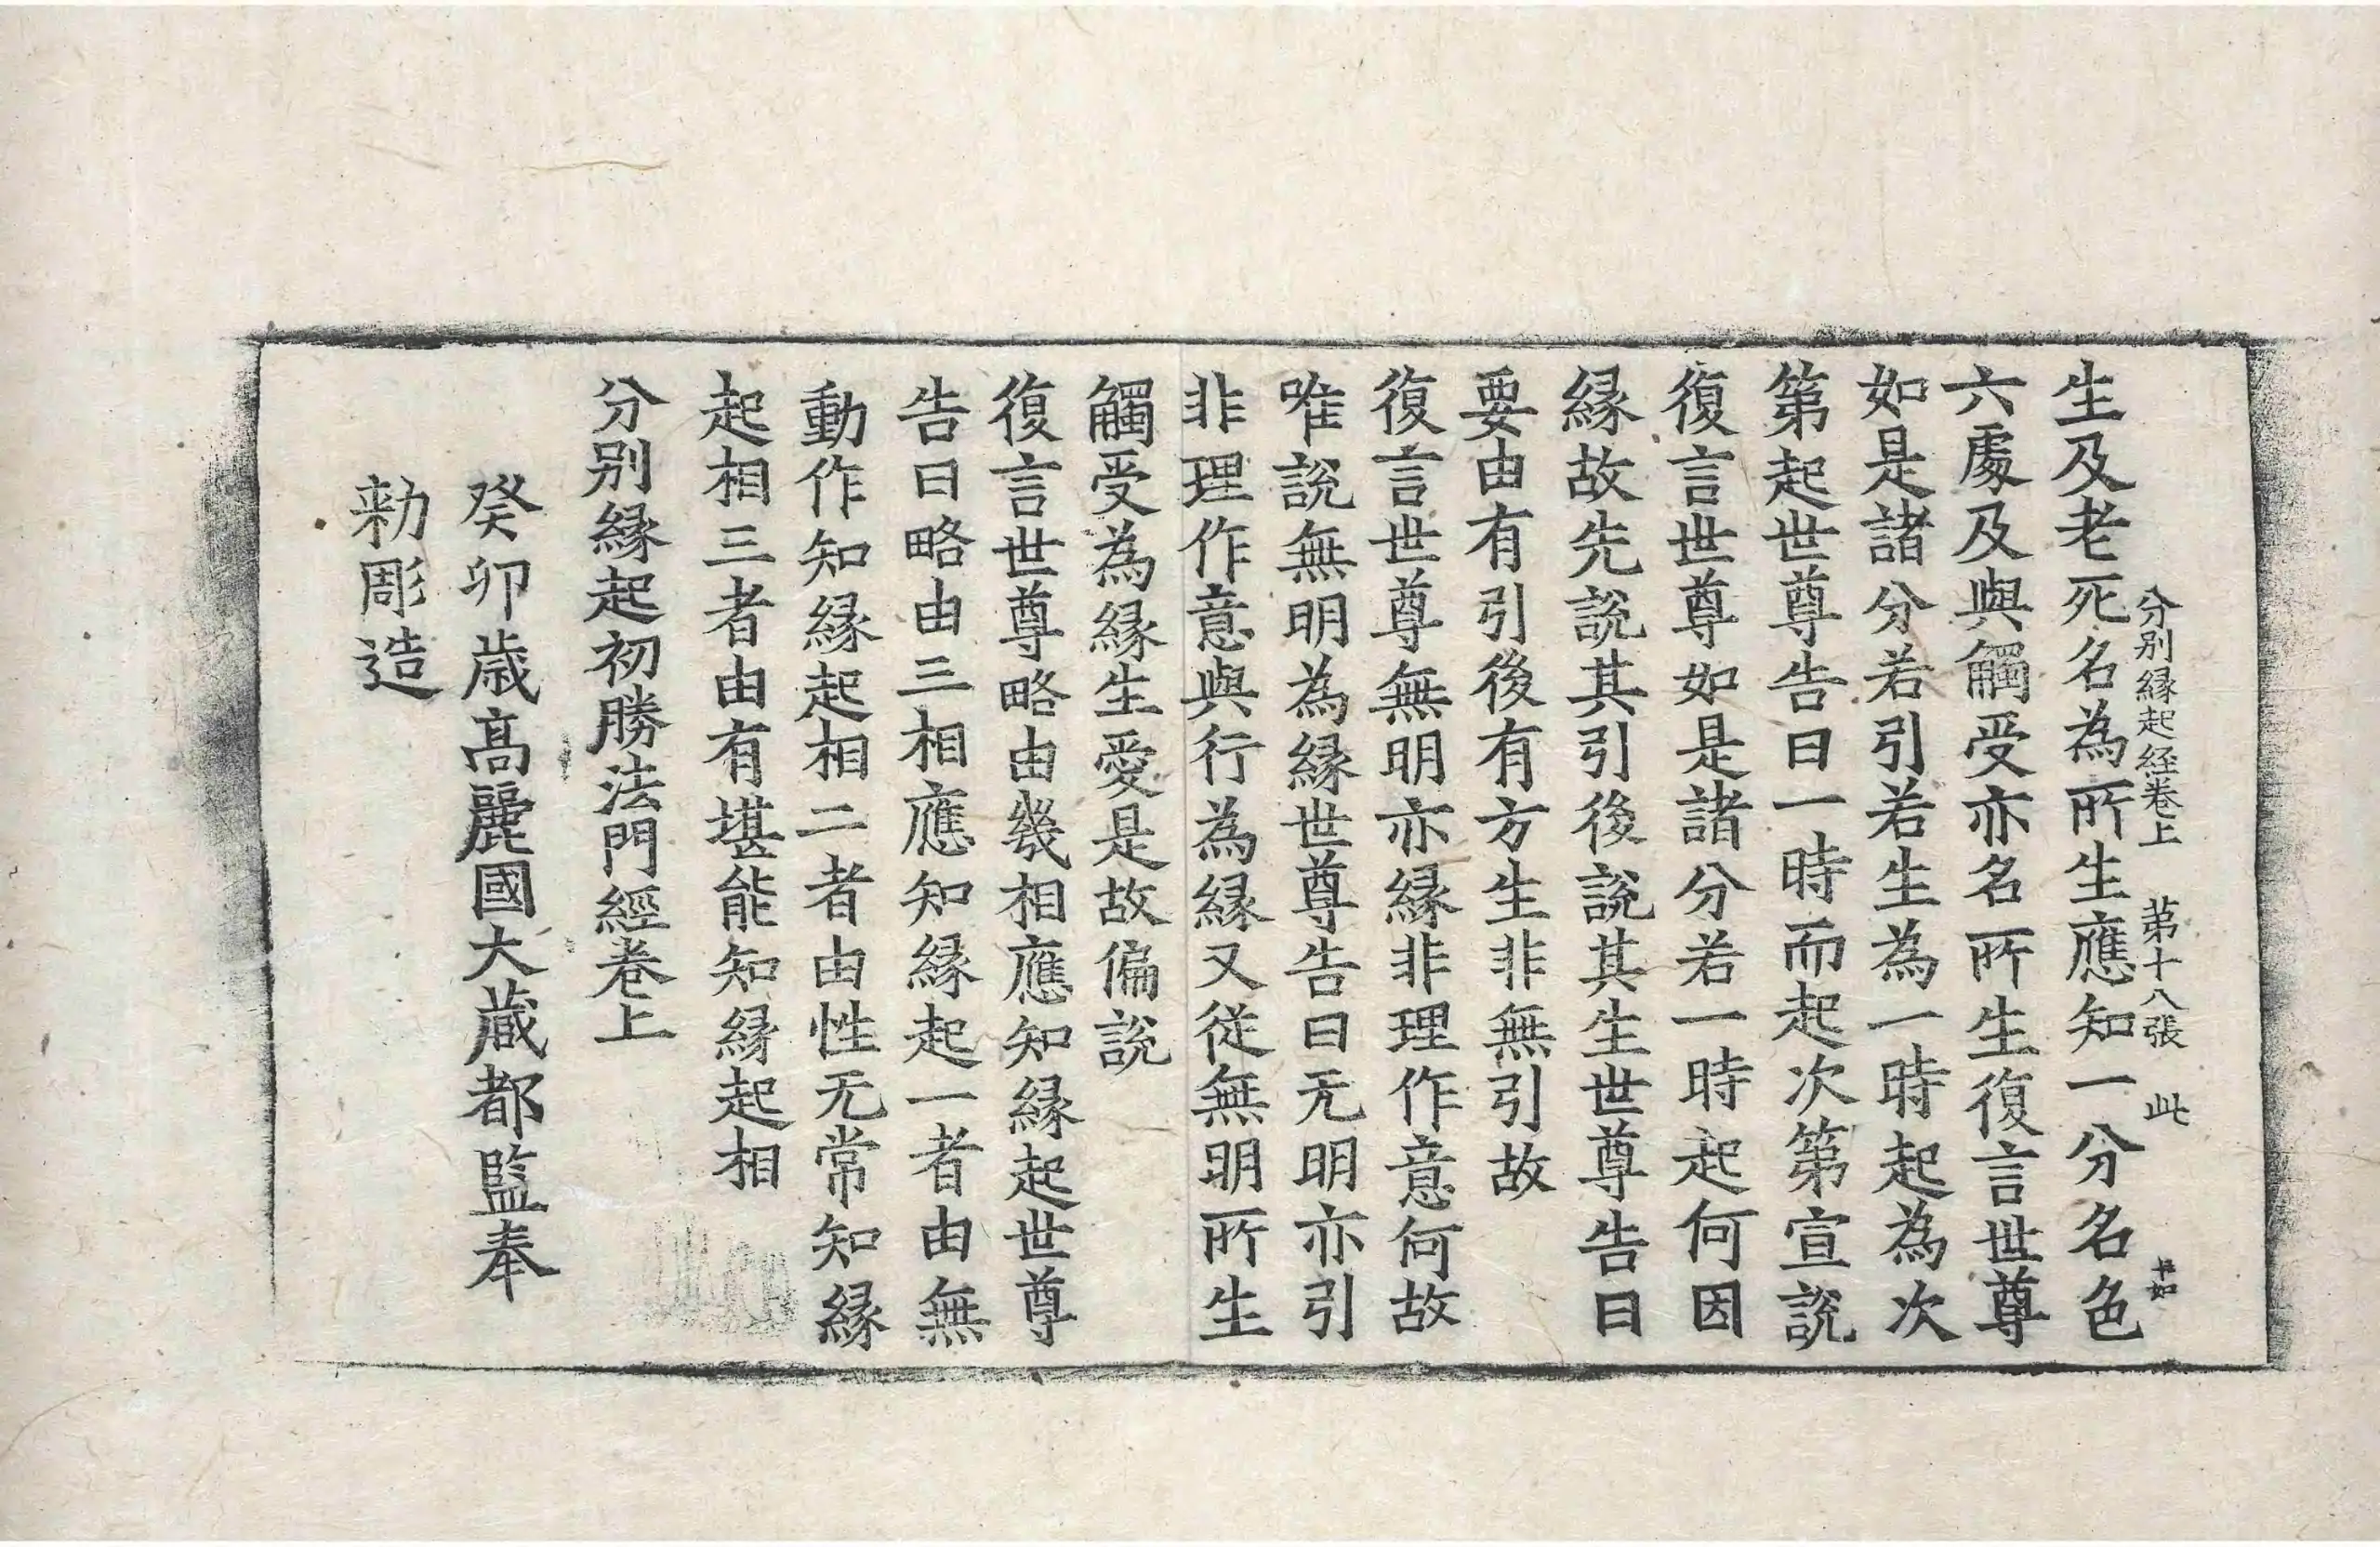 分別縁起経巻上 第十八張 此
生及老死名為所生應知一分名色
六處及與觸受亦名所生復言世尊
如是諸分若引若生為一時起為次
第起世尊告曰一時而起次第宣說
復言世尊如是諸分若一時起何因
縁故先說其引後說其生世尊告曰
要由有引後有方生非無引故
復言世尊無明亦縁非理作意何故
唯說無明為縁世尊告曰无明亦引
非理作意與行為縁又從無明所生
觸受為縁生愛是故偏說
復言世尊略由幾相應知縁起世尊
告曰略由三相應知縁起一者由無
動作知縁起相二者由性无常知縁
起相三者由有堪能知縁起相
分別縁起初勝法門經卷上
癸卯歳高麗國大藏都監奉
勑彫造